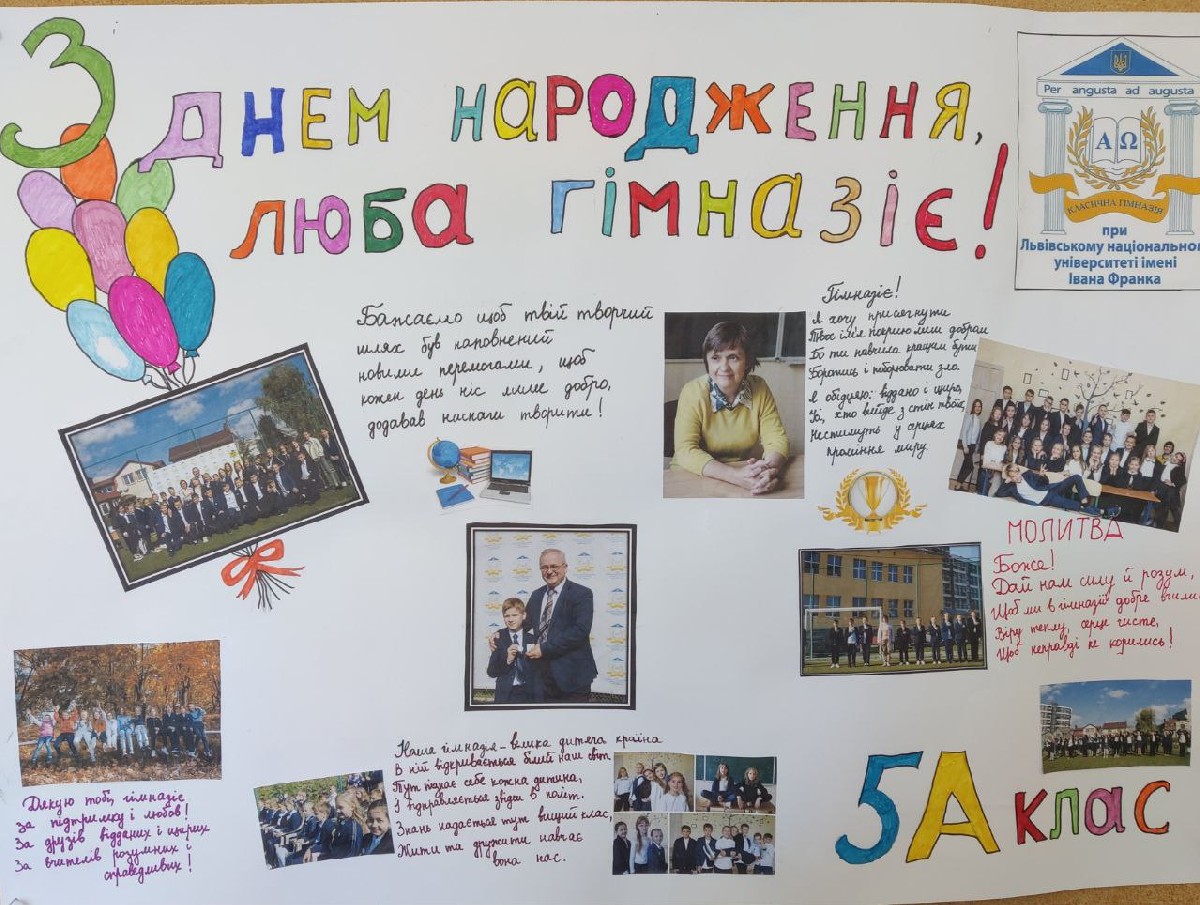 З ДНЕМ НАРОДЖЕННЯ,
ЛЮБА ГІМНАЗІЄ!
Per angusta ad augusta
Α Ω
КЛАСИЧНА ГІМНАЗІЯ
при
Львівському національному
університеті імені
Івана Франка
Бажаємо щоб твій творчий
шлях був наповнений
новими перемогами, щоб
кожен день ніс лише добро,
додавав наснаги творити!
Гімназіє!
Я хочу присягнути
Твоє ім'я накрию лиш добром
Бо ти навчила кращим бути
Боротись і поборювати зло.
Я обіцяю: віддано і щиро,
Усі, хто вийде з стін твоїх,
Нестимуть у серцях
проміння миру
МОЛИТВА
Боже!
Дай нам силу й розум,
Щоб ми в гімназії добре вчились
Віру теплу, серце чисте,
Щоб неправді не корились!
Дякую тобі, гімназіє
За підтримку і любов!
За друзів відданих і щирих
За вчителів розумних і
справедливих!
Наша гімназія - велика дитяча країна
В ній відкривається білий наш світ
Тут пізнає себе кожна дитина,
І відправляється звідси в політ.
Знань надається тут вищий клас,
Жити та дружити навчає
вона нас.
5А клас